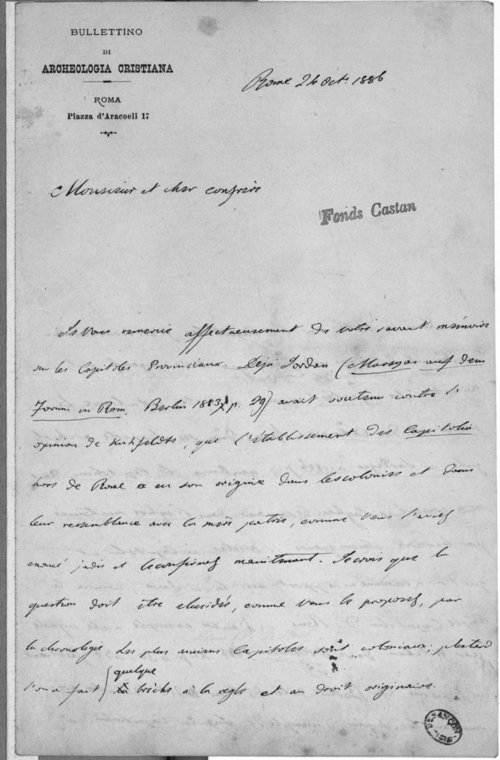 BULLETTINO
DI
ARCHEOLOGIA CRISTIANA
ROMA
Piazza d'Aracoeli 17
Rome 24 Oct. 1886
Monsieur et cher confrère
Fonds Castan
Je Vous remercie affectueusement de votre savant mémoire
sur les Capitoles Provinciaux. Déjà Jordan (Marsyas auf dem
Forum in Rom, Berlin 1883 p. 29) avait soutenu contre l'
opinion de que l'établissement des Capitoles
hors de Rome a eu son origine dans les colonies et dans
leur ressemblance avec la mère patrie, comme Vous l'avez
jadis et le confirmez maintenant. Je crois que la
question doit être elucidée, comme vous le proposez, par
la chronologie. Les plus anciens Capitoles sont coloniaux; plus tard
l'on a fait quelque brèche à la règle et au droit originaire.
BESANÇON